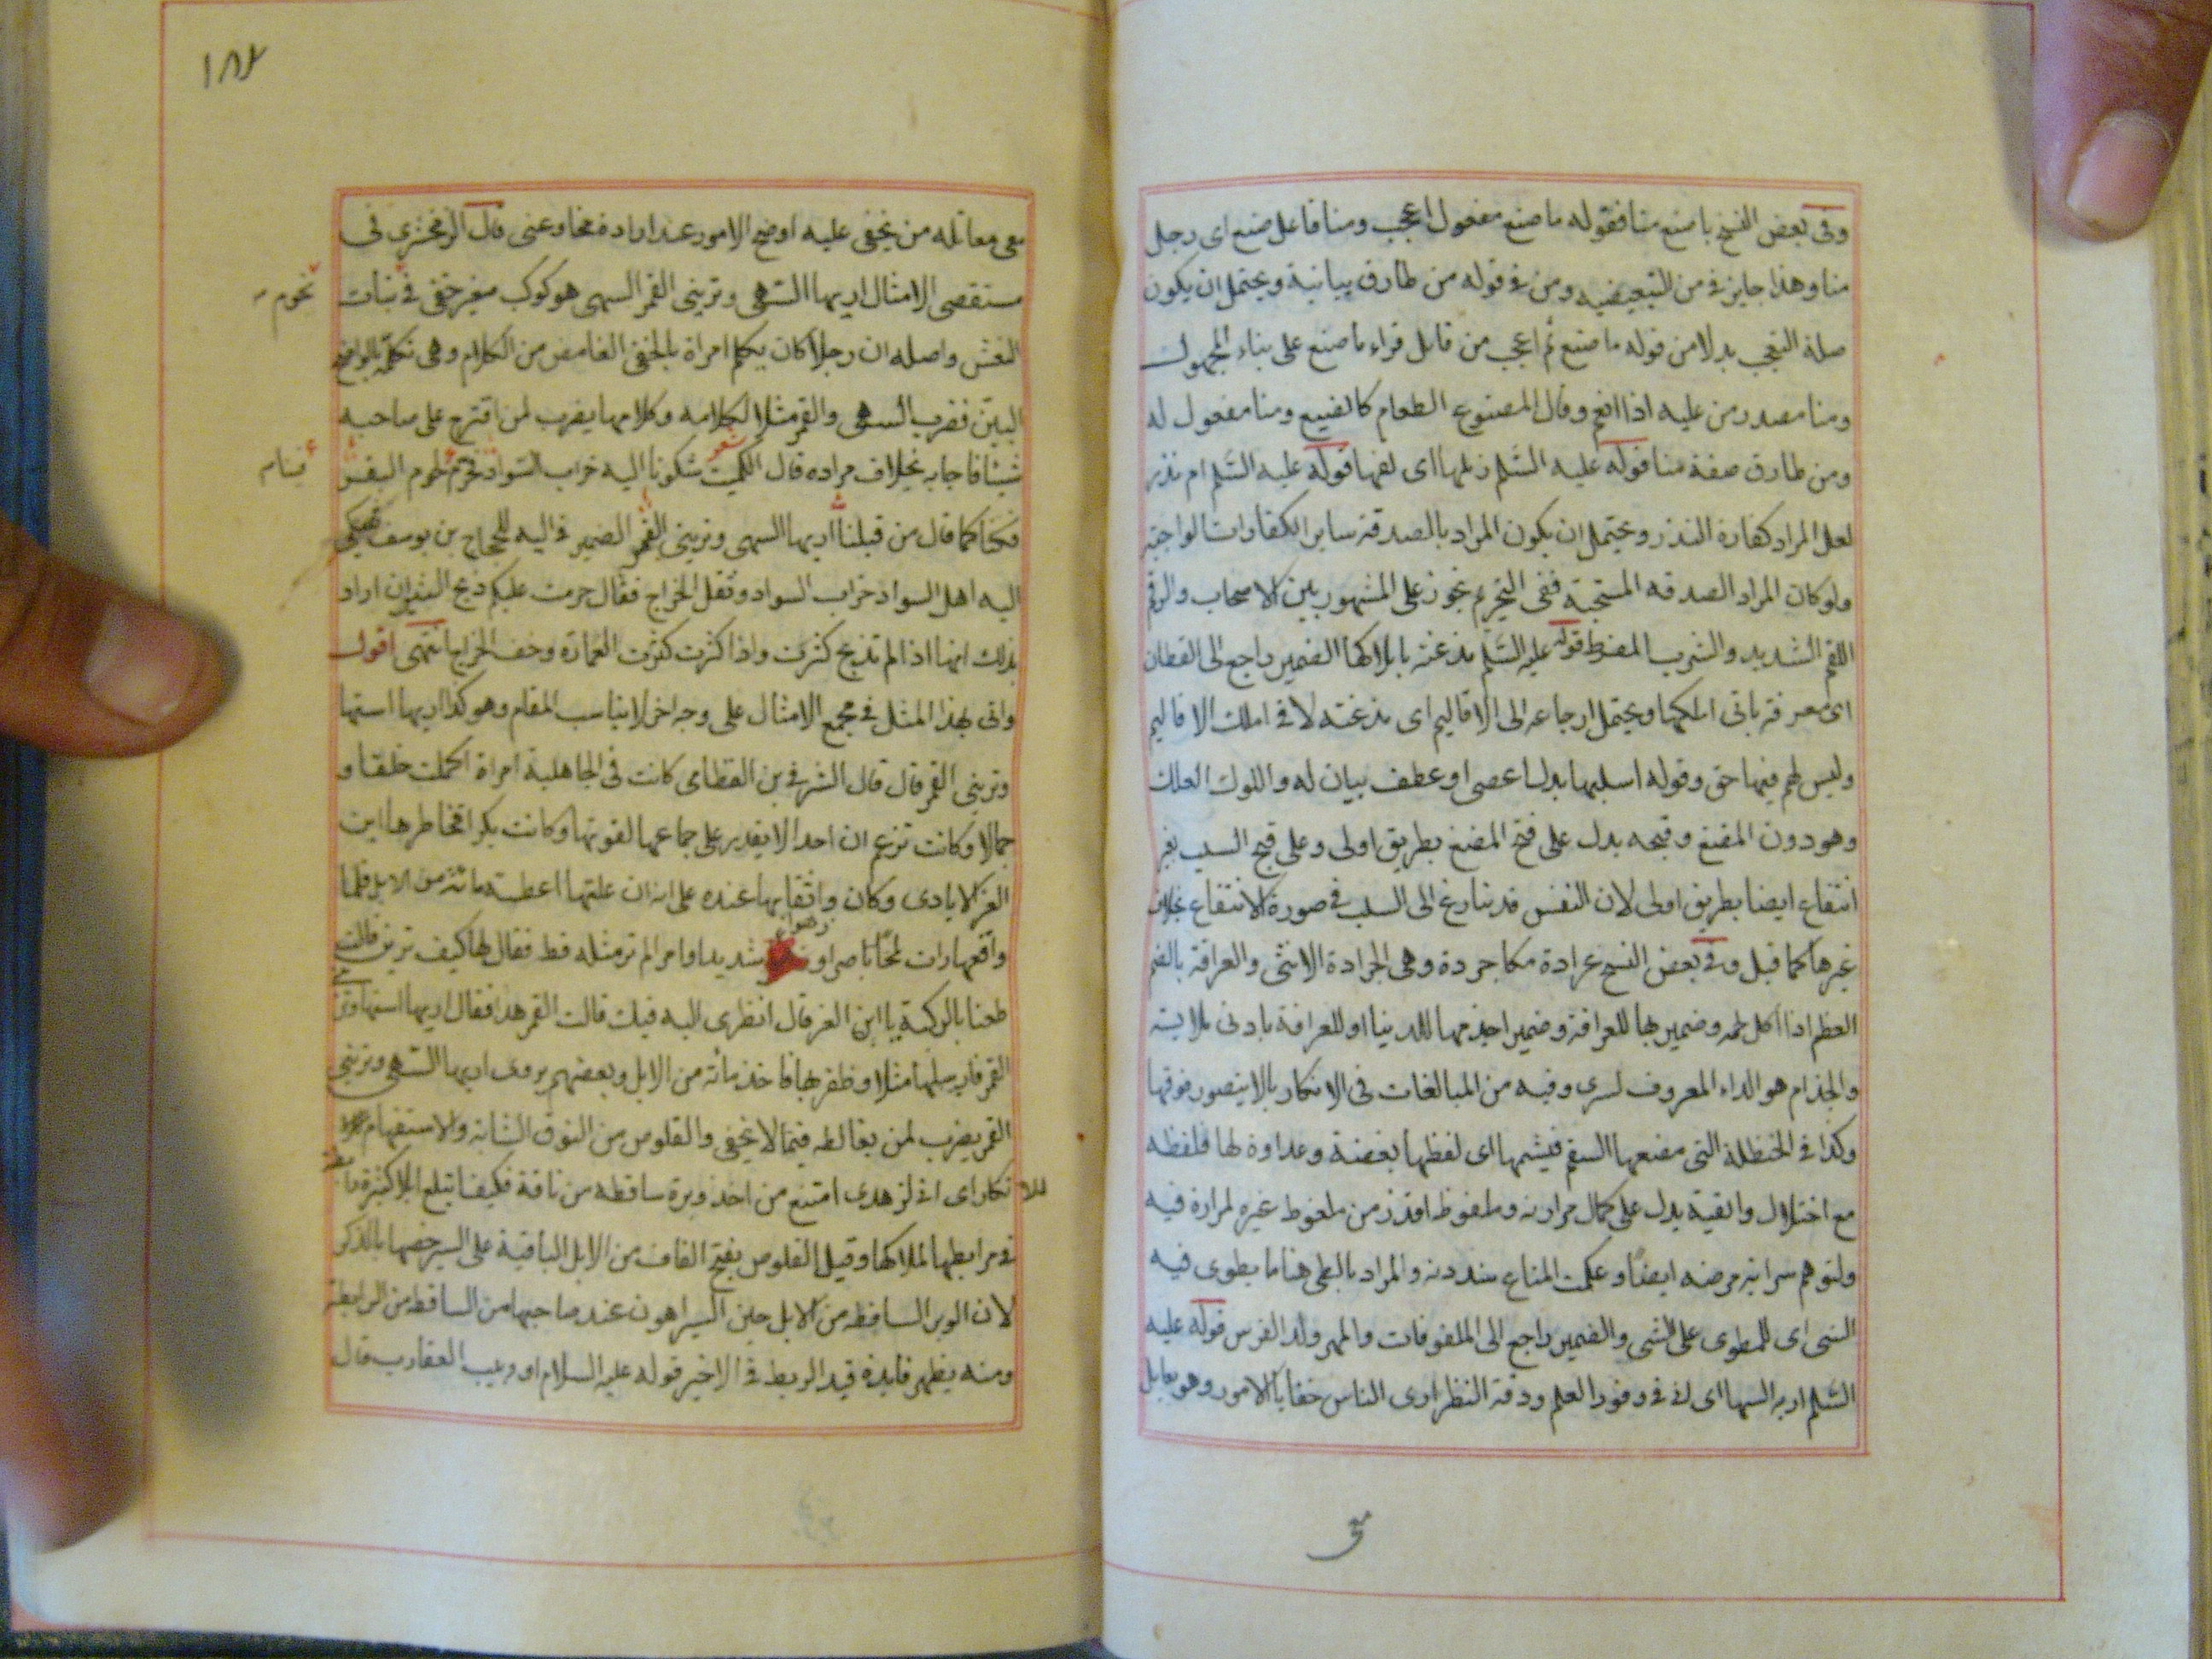 وفى بعض النسخ ما صنع منا فقوله ما صنع مفعول اعجب ومنا فاعل صنع اى رجل
منا وهذا جايز فى من التبعيضيه ومن فى قوله من طارق بيانية ويحتمل ان يكون
صلة التعجب بدلا من قوله ما صنع ثم اعجب من قايل قراء ما صنع على بناء المجهول
ومنا مصدر من عليه اذا انعم وقال المصنوع الطعام كالضييع ومنا مفعول له
ومن طارق صفة منا قوله عليه السَّلم زملها اى لفها قوله عليه السَّلم ام نذر
لعل المراد كفارة النذر ويحتمل ان يكون المراد بالصدقة ساير الكفارات الواجبة
ولو كان المراد الصدقه المستحبة ففى التحريم تجوز على المشهور بين الاصحاب والرقم
اللقم الشديد والشرب المفرط قوله عليه السَّلم مذعنة باملاكها الضمير راجع الى القطان
اى معرفة بانى املكها ويحتمل ارجاعه الى الاقاليم اى مذعنة لا فى املك الاقاليم
وليس لهم فيها حق وقوله اسلبها بدل اعصى او عطف بيان له واللوك العلك
وهو دون المضغ وقبحه يدل على قبح المضغ بطريق اولى وعلى قبح السلب بغير
انتفاع ايضا بطريق اولى لان النفس قد تنازع الى السلب فى صورة الانتفاع بخلاف
غيرها كما قيل وفى بعض النسخ عرادة مكا جردة وهى الجرادة الانثى والعراقة بالضم
العظم اذا اكل لحمه وضمير بها للعراقة وضمير اجذمها للدنيا او للعراقة بادنى ملابسة
والجذام هو الداء المعروف لسرى وفيه من المبالغات فى الانكار ما لا يتصور فوقها
وكذا فى الحنظلة التى مضغها السقم فيشمها اى لفظها بغضة وعداوة لها فلفظه
مع اختلال والقية يدل على كمال مرارته وملفوظ اقذر من ملفوظ غيره لمرارة فيه
ولتوهم سراية مرضه ايضًا وعكمت المتاع شددته والمراد بالعلى هنا ما يطوى فيه
الشى اى للمطوى على الشى والضمير راجع الى الملفوفات والمهر ولد الفرس قوله عليه
السَّلم اريه السها اى انى فى وفور العلم ودقة النظر ارى الناس خفايا الامور وهو يقابل
مع
١٨٤
معى مقاتله من يخفى عليه اوضح الامور عند ارادة مخاوعنى قال الزمخشرى فى
مستقصى الامثال اريها السّهى وترينى القمر السهى هو كوكب صغير خفى فى بنات
النعش واصله ان رجلا كان يكلم امراة بالخفى الغامض من الكلام وهى تكلمه بالواضح
البيّن فضرب السهى والقمر مثلا لكلامه وكلامها يضرب لمن اقترح على صاحبه
شيئا فاجابه بخلاف مراده قال الكميت شعر شكونا اليه خراب السواد فحرّم لحوم البقر
فكنا كما قال من قبلنا اريها السهى وترينى القمر الضمير فى اليه للحجاج بن يوسف
اليه اهل السواد خراب السواد وثقل الخراج فقال حرمت عليكم ذبح الثيران اراد
بذلك انها اذا لم تذبح كثرت واذا كثرت كثرت العمارة وخف الخراج انتهى اقول
واتى بهذا المثل فى مجمع الامثال على وجه اخر لا يناسب المقام وهو كذا اريها استها
وترينى القمر قال قال الشرقى بن القطامى كانت فى الجاهلية امراة اكملت خلقا و
جمالا وكانت تزعم ان احدا لا يقدر على جماعها لقوتها وكانت بكرا فخاطرها ابن
الغز الايادى وكان واثقا بها عنده على انه ان غلبها اعطته مائة من الابل فلما
واقعها رات لمحًا باصرا و رهزا شديدا وامرا لم تر مثله قط فقال لها كيف ترين قالت
طعنا بالركبة يا ابن الغز قال انظرى اليه فيك قالت القمر هذا فقال اريها استها وترينى
القمر فارسلها مثلا وظفر بها فاخذ مائة من الابل وبعضهم يروى اريها السّهى وترينى
القمر يضرب لمن يغالطه فيما لا يخفى والقلوص من النوق الشابة والاستفهام
للانكار اى انى لزهدى امتنع من اخذ وبرة ساقطه من ناقة فكيف ابتلع ابلا كثيرة
فى مرابطها لملاكها وقيل القلوص بفتح القاف من الابل الباقية على السير خصها بالذكر
لان الوبر الساقطه من الابل حين السير اهون عند صاحبها من الساقط من الرابطة
ومنه يظهر فايدة قيد الربط فى الاخير قوله عليه السلام او دبيب العقارب قال